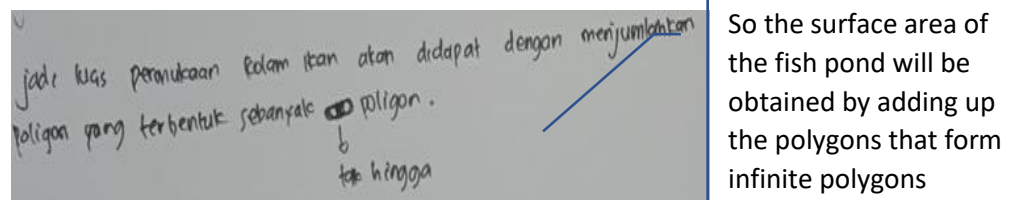 jadi luas permukaan kolam ikan akan didapat dengan menjumlahkan
poligon yang terbentuk sebanyak ∞ poligon.
hingga
So the surface area of
the fish pond will be
obtained by adding up
the polygons that form
infinite polygons